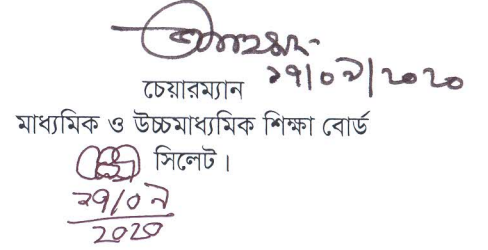 ২৭/০৭/২০২০
চেয়ারম্যান
মাধ্যমিক ও উচ্চমাধ্যমিক শিক্ষা বোর্ড
সিলেট।
২৭/০৭
২০২০